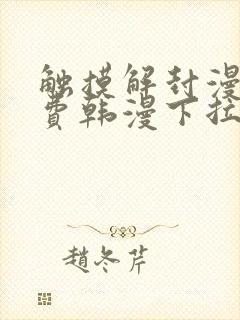 触摸解封漫
费韩漫下拉
趙冬芹